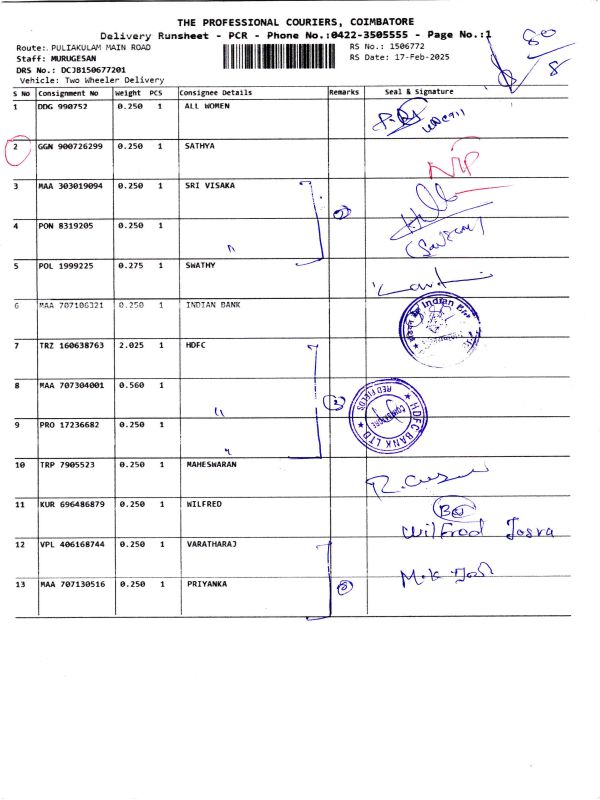 THE PROFESSIONAL COURIERS, COIMBATORE
Delivery Runsheet - PCR - Phone No.:0422-3505555 - Page No.:1
80
8
Route: PULIAKULAM MAIN ROAD
RS No.: 1506772
Staff: MURUGESAN
RS Date: 17-Feb-2025
DRS No.: DCJB150677201
Vehicle: Two Wheeler Delivery
S No Consignment No Weight PCS Consignee Details Remarks Seal & Signature
1 DDG 990752 0.250 1 ALL WOMEN
2 GGN 900726299 0.250 1 SATHYA
3 MAA 303019094 0.250 1 SRI VISAKA
4 PON 8319205 0.250 1 "
5 POL 1999225 0.275 1 SWATHY
6 MAA 707106321 0.250 1 INDIAN BANK
7 TRZ 160638763 2.025 1 HDFC
8 MAA 707304001 0.560 1 "
HDFC BANK LTD
RED FIELDS
COIMBATORE
9 PRO 17236682 0.250 1 "
10 TRP 7905523 0.250 1 MAHESWARAN
11 KUR 696486879 0.250 1 WILFRED
Wilfred
12 VPL 406168744 0.250 1 VARATHARAJ
13 MAA 707130516 0.250 1 PRIYANKA